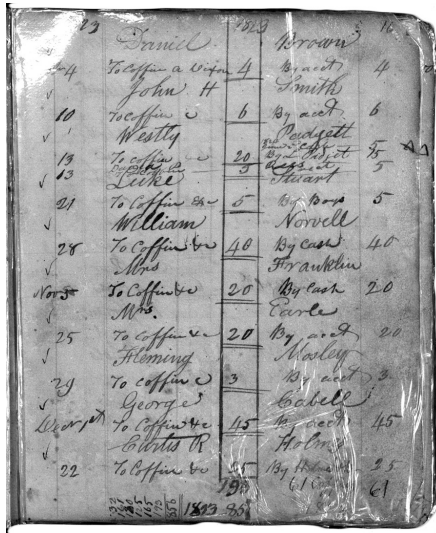 23 1823 16
Daniel Brown
4 To Coffin a 4 By acct 4
John H Smith
10 To Coffin 6 By acct 6
Westly Padgett
13 To Coffin 20 By
13 5 5
Luke Stuart
21 To Coffin &c 5 By Boys 5
William Norvell
28 To Coffin &c 40 By Cash 40
Mrs Franklin
Nov 5 To Coffin &c 20 By Cash 20
Mrs. Earle
25 To Coffin &c 20 By acct 20
Fleming Mosley
29 To Coffin c 3 By acct 3
George Cabell
To Coffin &c 45 By acct 45
Curtis R Holm
22 To Coffin &c 25 By 25
61
1823